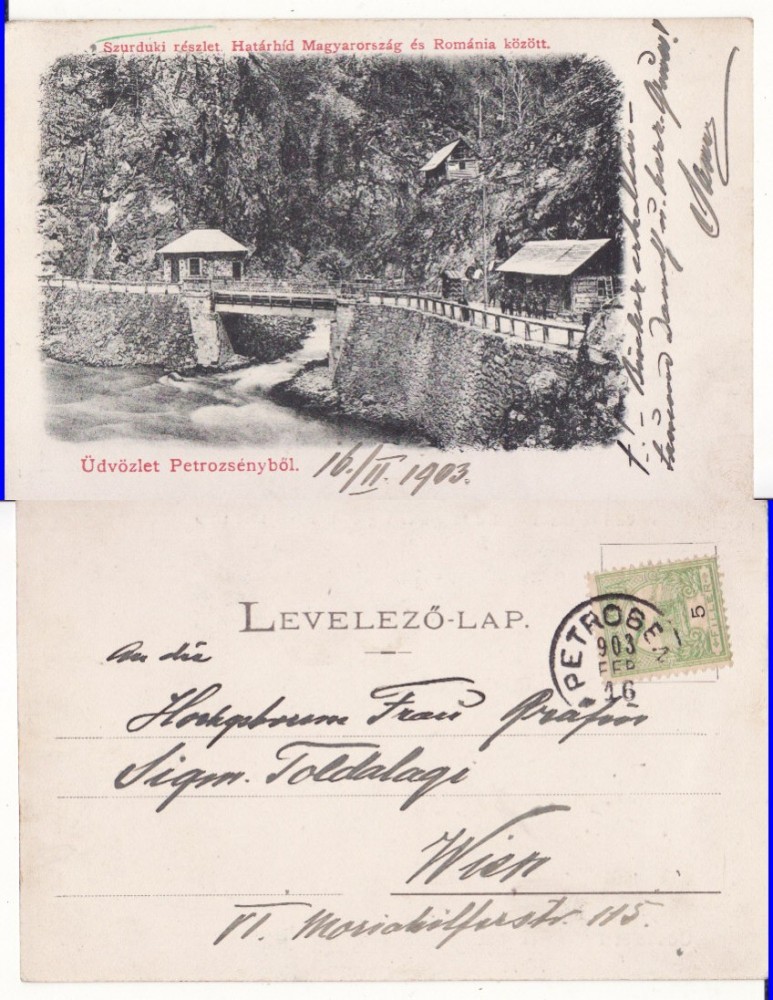 Szurduki részlet. Határhíd Magyarország és Románia között.
Üdvözlet Petrozsényből.
16./II. 1903.
erhalten –
u. herz.
LEVELEZŐ-LAP.
PETROSEN
903
FEB
16
5
An die
Hochgeborene Frau Gräfin
Sigm. Toldalagi
Wien
VI. Mariahilferstr. 115.